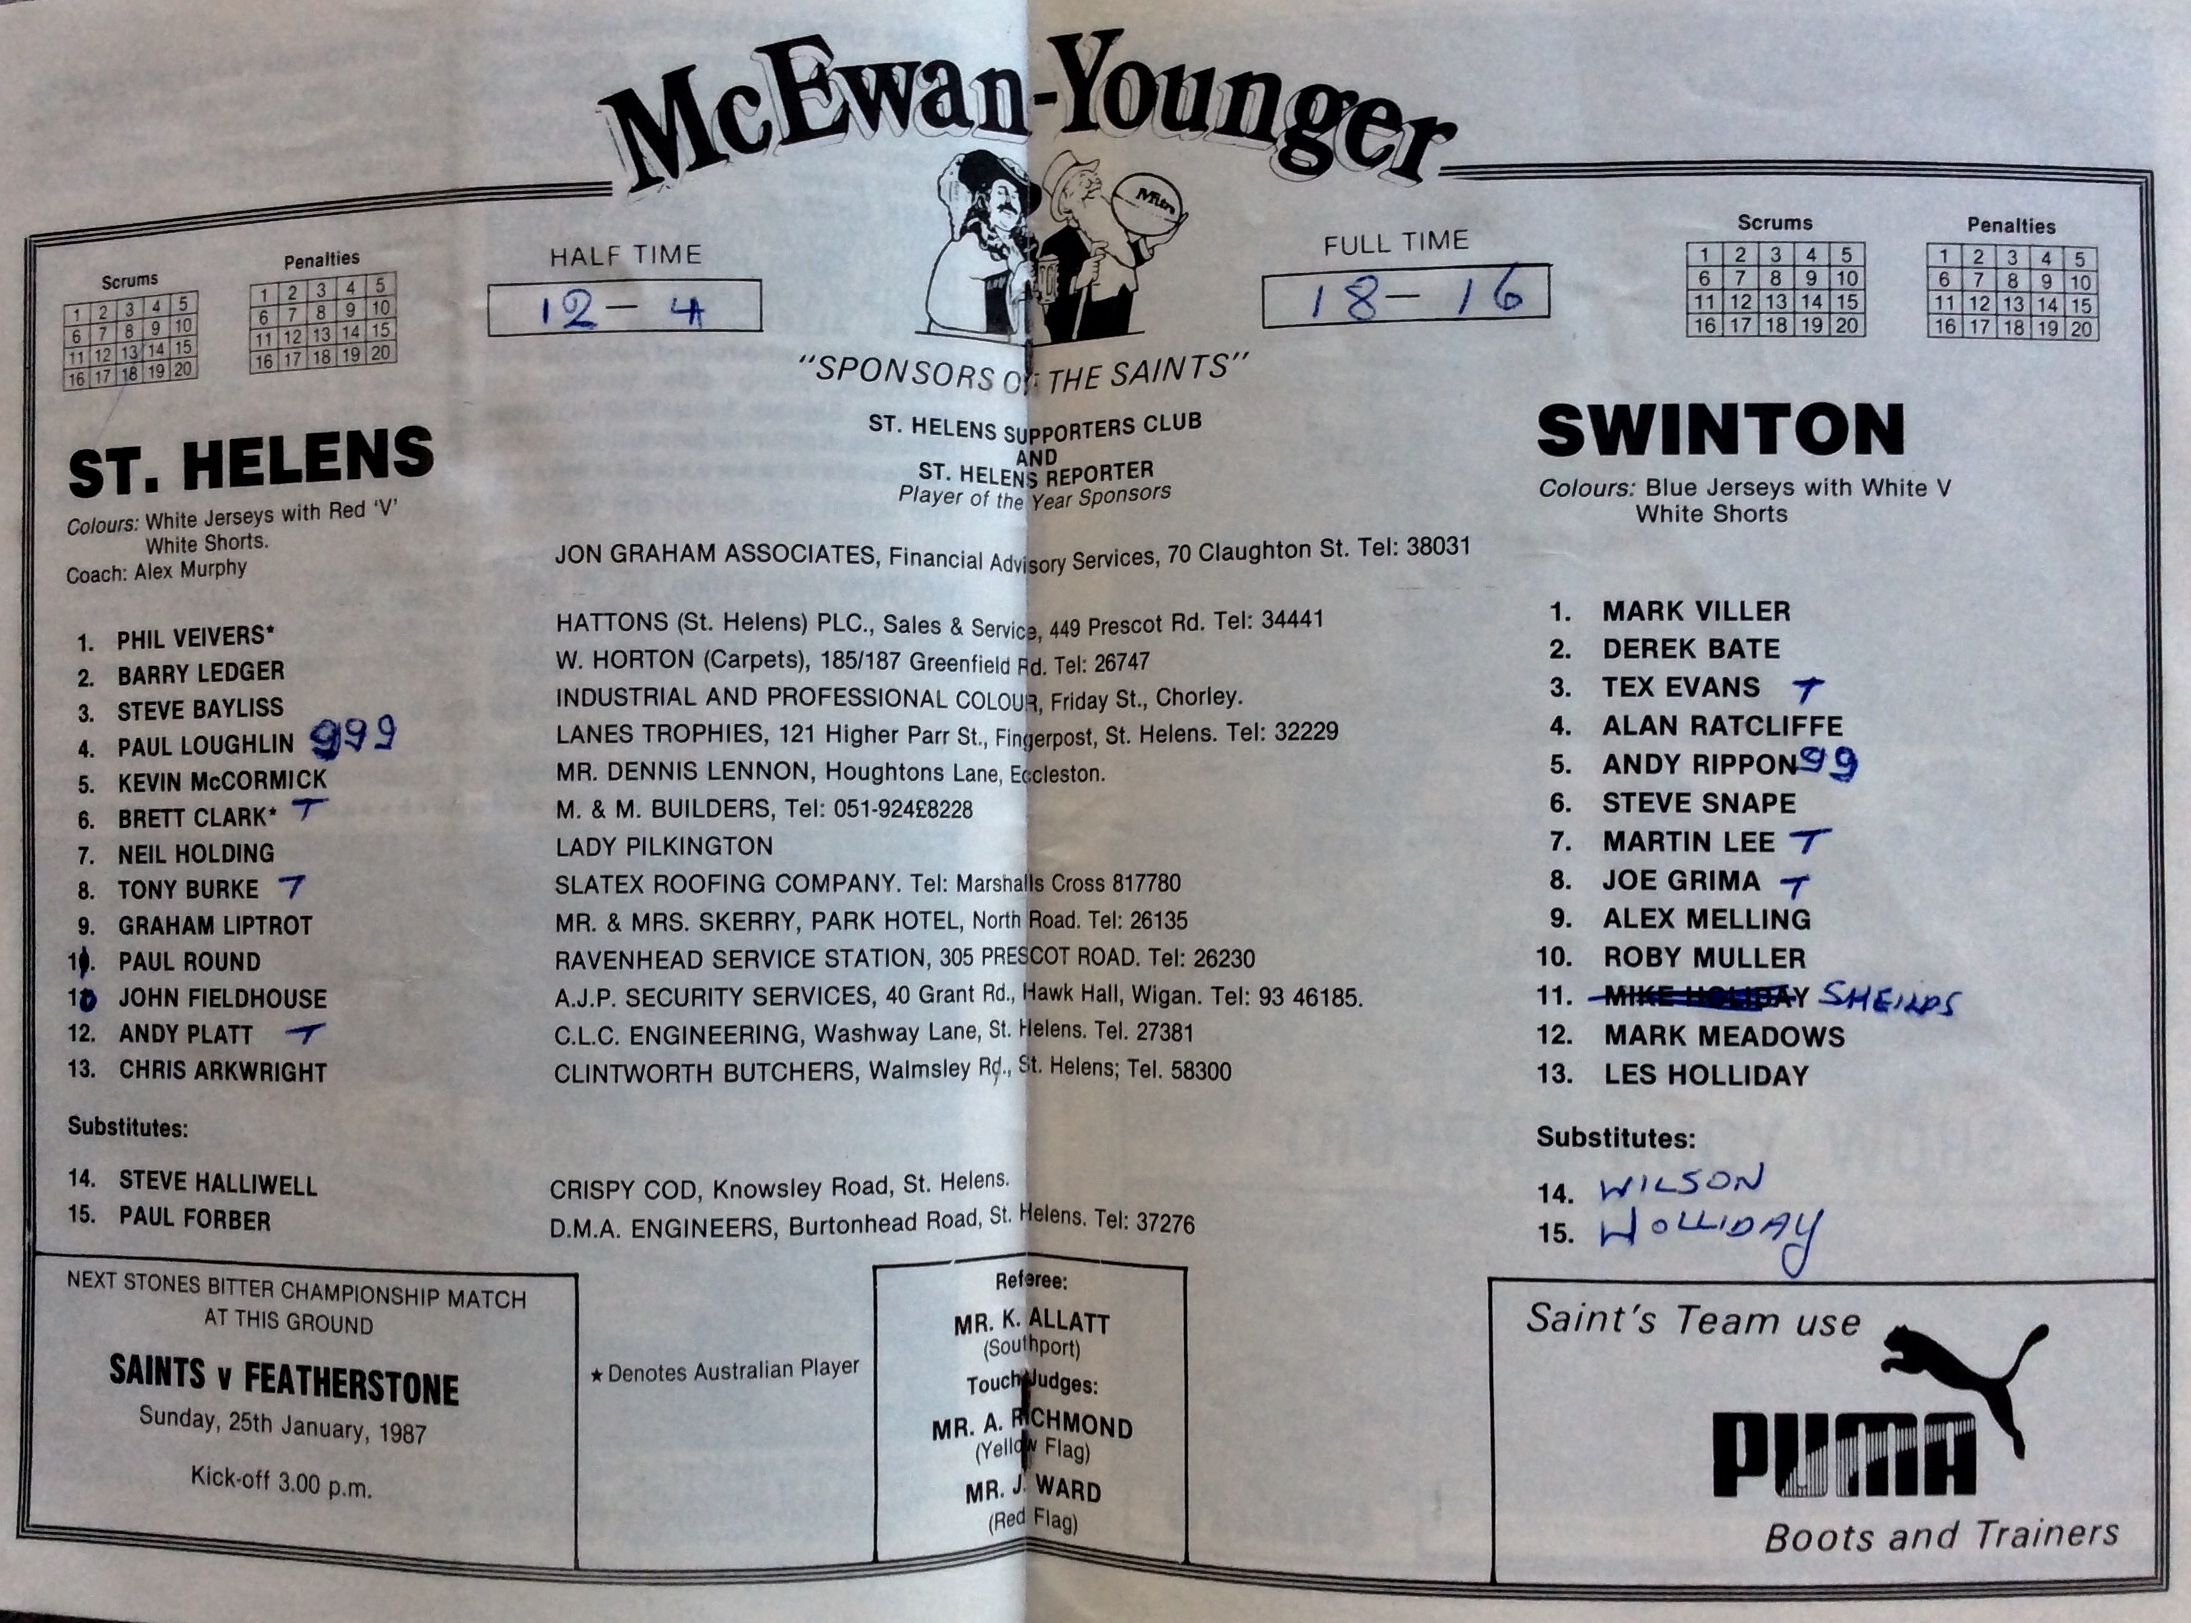 McEwan-Younger
Mitre
Scrums
1 2 3 4 5
6 7 8 9 10
11 12 13 14 15
16 17 18 19 20
Penalties
1 2 3 4 5
6 7 8 9 10
11 12 13 14 15
16 17 18 19 20
HALF TIME
12 - 4
FULL TIME
18 - 16
Scrums
1 2 3 4 5
6 7 8 9 10
11 12 13 14 15
16 17 18 19 20
Penalties
1 2 3 4 5
6 7 8 9 10
11 12 13 14 15
16 17 18 19 20
"SPONSORS OF THE SAINTS"
ST. HELENS SUPPORTERS CLUB
AND
ST. HELENS REPORTER
Player of the Year Sponsors
ST. HELENS
Colours: White Jerseys with Red 'V'
White Shorts.
Coach: Alex Murphy
1. PHIL VEIVERS*
2. BARRY LEDGER
3. STEVE BAYLISS
4. PAUL LOUGHLIN 999
5. KEVIN McCORMICK
6. BRETT CLARK* T
7. NEIL HOLDING
8. TONY BURKE T
9. GRAHAM LIPTROT
11. PAUL ROUND
10 JOHN FIELDHOUSE
12. ANDY PLATT T
13. CHRIS ARKWRIGHT
Substitutes:
14. STEVE HALLIWELL
15. PAUL FORBER
JON GRAHAM ASSOCIATES, Financial Advisory Services, 70 Claughton St. Tel: 38031
HATTONS (St. Helens) PLC., Sales & Service, 449 Prescot Rd. Tel: 34441
W. HORTON (Carpets), 185/187 Greenfield Rd. Tel: 26747
INDUSTRIAL AND PROFESSIONAL COLOUR, Friday St., Chorley.
LANES TROPHIES, 121 Higher Parr St., Fingerpost, St. Helens. Tel: 32229
MR. DENNIS LENNON, Houghtons Lane, Eccleston.
M. & M. BUILDERS, Tel: 051-924£8228
LADY PILKINGTON
SLATEX ROOFING COMPANY. Tel: Marshalls Cross 817780
MR. & MRS. SKERRY, PARK HOTEL, North Road. Tel: 26135
RAVENHEAD SERVICE STATION, 305 PRESCOT ROAD. Tel: 26230
A.J.P. SECURITY SERVICES, 40 Grant Rd., Hawk Hall, Wigan. Tel: 93 46185.
C.L.C. ENGINEERING, Washway Lane, St. Helens. Tel. 27381
CLINTWORTH BUTCHERS, Walmsley Rd., St. Helens; Tel. 58300
CRISPY COD, Knowsley Road, St. Helens.
D.M.A. ENGINEERS, Burtonhead Road, St. Helens. Tel: 37276
SWINTON
Colours: Blue Jerseys with White V
White Shorts
1. MARK VILLER
2. DEREK BATE
3. TEX EVANS T
4. ALAN RATCLIFFE
5. ANDY RIPPON 99
6. STEVE SNAPE
7. MARTIN LEE T
8. JOE GRIMA T
9. ALEX MELLING
10. ROBY MULLER
11. MIKE HOLIDAY SHEILDS
12. MARK MEADOWS
13. LES HOLLIDAY
Substitutes:
14. WILSON
15. HOLLIDAY
NEXT STONES BITTER CHAMPIONSHIP MATCH
AT THIS GROUND
SAINTS v FEATHERSTONE
Sunday, 25th January, 1987
Kick-off 3.00 p.m.
★ Denotes Australian Player
Referee:
MR. K. ALLATT
(Southport)
Touch Judges:
MR. A. RICHMOND
(Yellow Flag)
MR. J. WARD
(Red Flag)
Saint's Team use
PUMA
Boots and Trainers